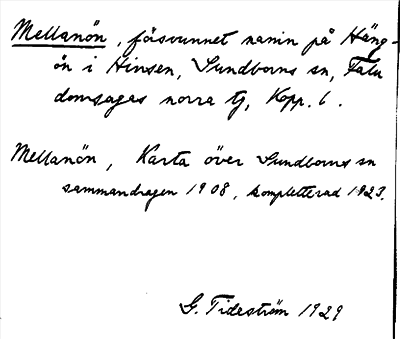 Mellanön, försvunnet namn på Häng-
ön i Hinsen, Sundborns sn, Falu
domsagas norra tg, Kopp. l.
Mellanön, Karta över Sundborns sn
sammandragen 1908, kompletterad 1923.
G. Tideström 1929